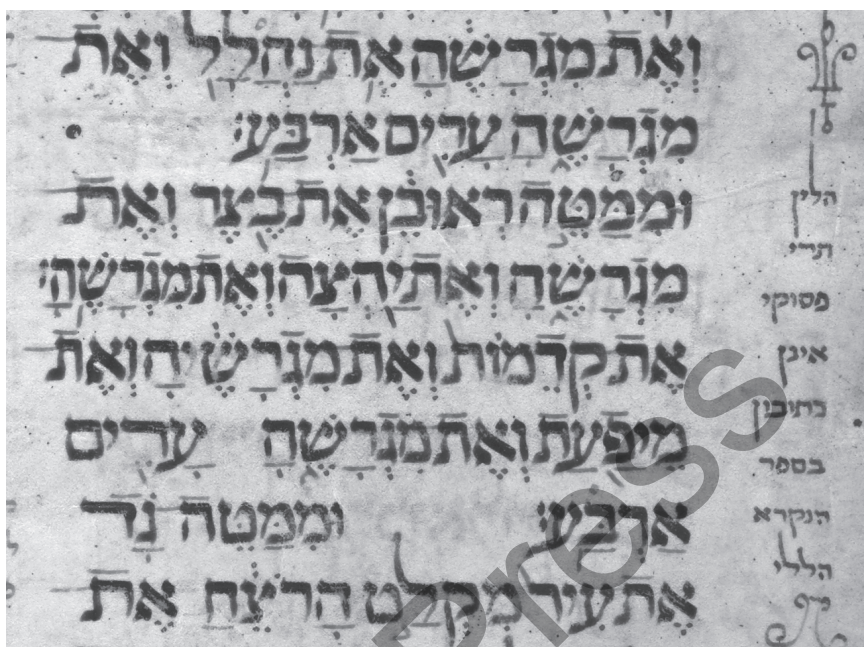 וְאֶת מִגְרָשֶׁהָ אֶת נַהֲלָל וְאֶת
מִגְרָשֶׁהָ עָרִים אַרְבַּע׃
וּמִמַּטֵּה רְאוּבֵן אֶת בֶּצֶר וְאֶת
מִגְרָשֶׁהָ וְאֶת יַהְצָה וְאֶת מִגְרָשֶׁהָ׃
אֶת קְדֵמוֹת וְאֶת מִגְרָשֶׁיהָ וְאֶת
מֵיפָעַת וְאֶת מִגְרָשֶׁהָ עָרִים
אַרְבַּע׃ וּמִמַּטֵּה גָד
אֶת עִיר מִקְלַט הָרֹצֵחַ אֶת
הלין
תרי
פסוקי
אינן
כתיבין
בספר
הנקרא
הללי
Press